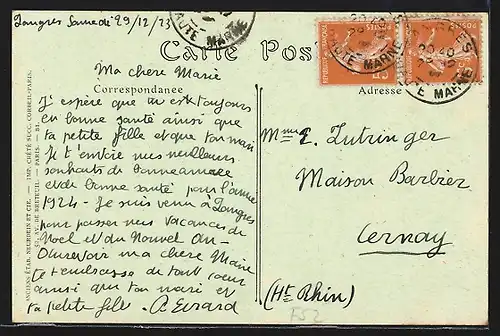 Langres Samedi 29/12/23
HAUTE MARNE
Carte Postale
Ma chere Marie
Correspondance
Adresse
J'espère que tu es toujours
en bonne santé ainsi que
ta petite fille et que ton mari
Je t'envoie mes meilleurs
souhaits de bonne année
et de bonne santé pour l'année
1924 - Je suis venu à Langres
pour passer mes vacances de
Noel et du Nouvel An -
Au revoir ma chere Marie
Je t'embrasse de tout coeur
ainsi que ton mari et
ta petite fille
Mme E. Lutringer
Maison Barbier
Cernay
(Ht Rhin)
F52
ANCIENS ÉTAB. NEURDEIN ET CIE. — IMP. CRÉTÉ SUCC. CORBEIL-PARIS.
52, AV. DE BRETEUIL. — PARIS.